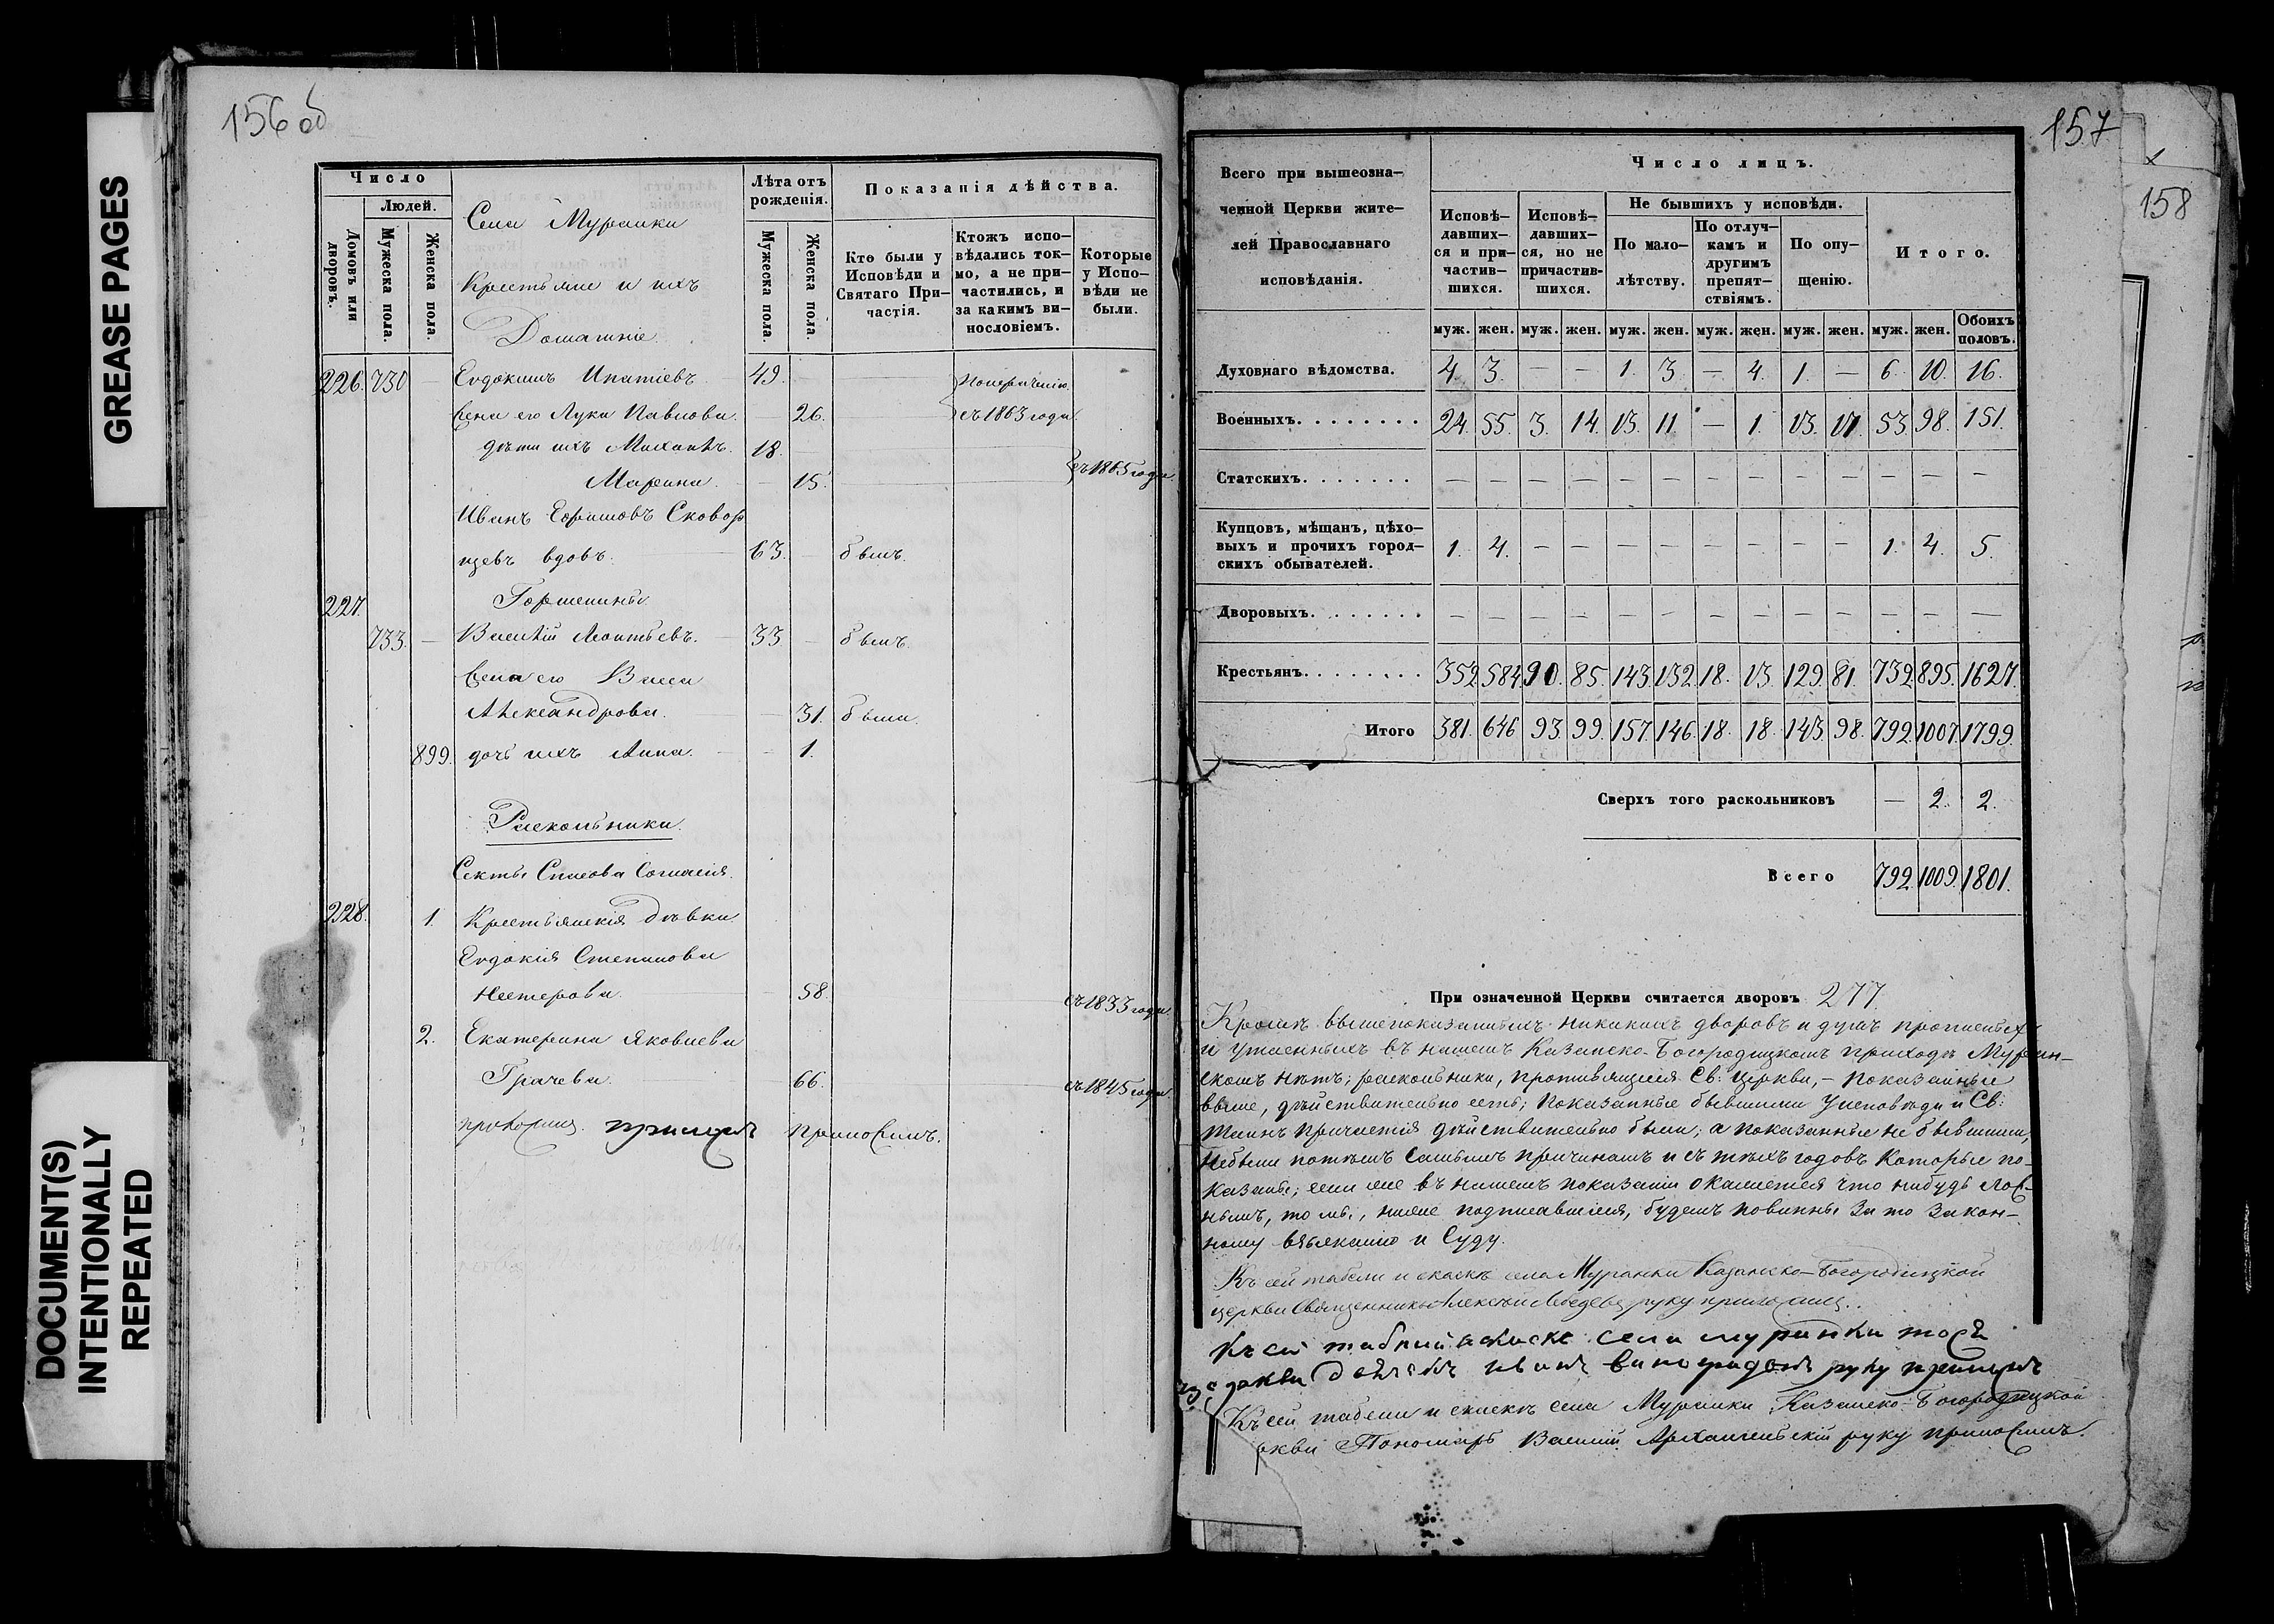 GREASE PAGES
DOCUMENT(S)
INTENTIONALLY
REPEATED
156 об
Число
Людей.
Домовъ или дворовъ.
Мужеска пола.
Женска пола.
Села Муранки
Крестьяне и ихъ
Домашніе.
Лѣта отъ рожденія.
Мужеска пола.
Женска пола.
Показанія дѣйства.
Кто были у Исповѣди и Святаго Причастія.
Ктожъ исповѣдались токмо, а не причастились, и за какимъ винословіемъ.
Которые у Исповѣди не были.
226. 730 — Евдокимъ Ипатіевъ 49.
Жена его Лукія Павлова. — 26. съ 1863 года.
дѣти ихъ Михаилъ. 18.
Марѳина. — 15. съ 1865 года.
Иванъ Ефимовъ Сковор
цевъ вдовъ. 63. — былъ.
227. Горшенины
733. — Василій Леонтьевъ. 33 — былъ.
Жена его Васса
Александрова. — 31. была.
899. дочь ихъ Анна. — 1.
Раскольники.
Секты Спасова Согласія.
228. 1. Крестьянскія дѣвки
Евдокія Степанова
Нестерова. — 58. съ 1833 года.
2. Екатерина Яковлева
Грачева. — 66. съ 1845 года.
приложилъ.
157
158
Всего при вышеозначенной Церкви жителей Православнаго исповѣданія.
Число лицъ.
Исповѣдавшихся и причастившихся.
Исповѣдавшихся, но не причастившихся.
Не бывшихъ у исповѣди.
По малолѣтству.
По отлучкамъ и другимъ препятствіямъ.
По опущенію.
Итого.
муж. жен. муж. жен. муж. жен. муж. жен. муж. жен. муж. жен. Обоихъ половъ.
Духовнаго вѣдомства. 4. 3. — — 1. 3. — 4. 1. — 6. 10. 16.
Военныхъ. 24. 55. 3. 14. 13. 11. — 1. 13. 17. 53. 98. 151.
Статскихъ. — — — — — — — — — — — — —
Купцовъ, мѣщанъ, цѣховыхъ и прочихъ городскихъ обывателей. 1. 4. — — — — — — — — 1. 4. 5.
Дворовыхъ. — — — — — — — — — — — — —
Крестьянъ. 352. 584. 90. 85. 143. 132. 18. 13. 129. 81. 732. 895. 1627.
Итого 381. 646 93. 99. 157. 146. 18. 18. 143. 98. 792. 1007. 1799.
Сверхъ того раскольниковъ — 2. 2.
Всего 792. 1009. 1801.
При означенной Церкви считается дворовъ 277.
Кромѣ вышепоказанныхъ никакихъ дворовъ и душъ прописныхъ
и утаенныхъ въ нашемъ Казанско-Богородицкомъ приходѣ Муран-
скомъ нѣтъ; раскольники, противящіеся Св: Церкви, — показанные
выше, дѣйствительно есть; показанные бывшими у исповѣди и Св:
Таинъ причастія дѣйствительно были; а показанные не бывшими,
небыли потѣмъ самымъ причинамъ и съ тѣхъ годовъ которые по-
казаны; если же въ нашемъ показаніи окажется что нибудь лож-
нымъ, то мы, ниже подписавшіеся, будемъ повинны за то закон-
ному взысканію и Суду.
Къ сей табели и сказкѣ села Муранки Казанско-Богородицкой
церкви Священникъ Алексѣй Лебедевъ руку приложилъ.
Къ сей табели и скаске села муранки тоежъ
церкви дьячекъ иванъ виноградовъ руку приложилъ
Къ сей табели и сказкѣ села Муранки Казанско-Богородицкой
церкви Пономарь Василій Архангельскій руку приложилъ.